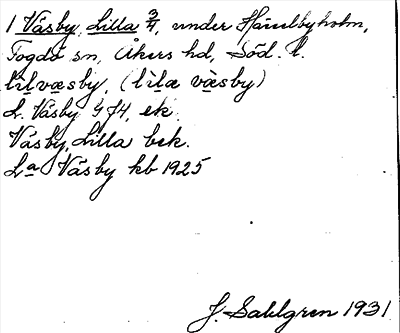 1 Väsby, Lilla 3/4, under Hässelbyholm,
Fogdö sn, Åkers hd, Söd. l.
lilvæsby, (lìlæ væsby)
L. Väsby GJ4, ek.
Väsby, Lilla bek.
La Väsby kb 1925
J. Sahlgren 1931